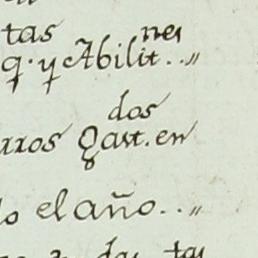 tas nes
q. y Abilit..,,
dos
rros Gast. en
lo el año..,,
das tas